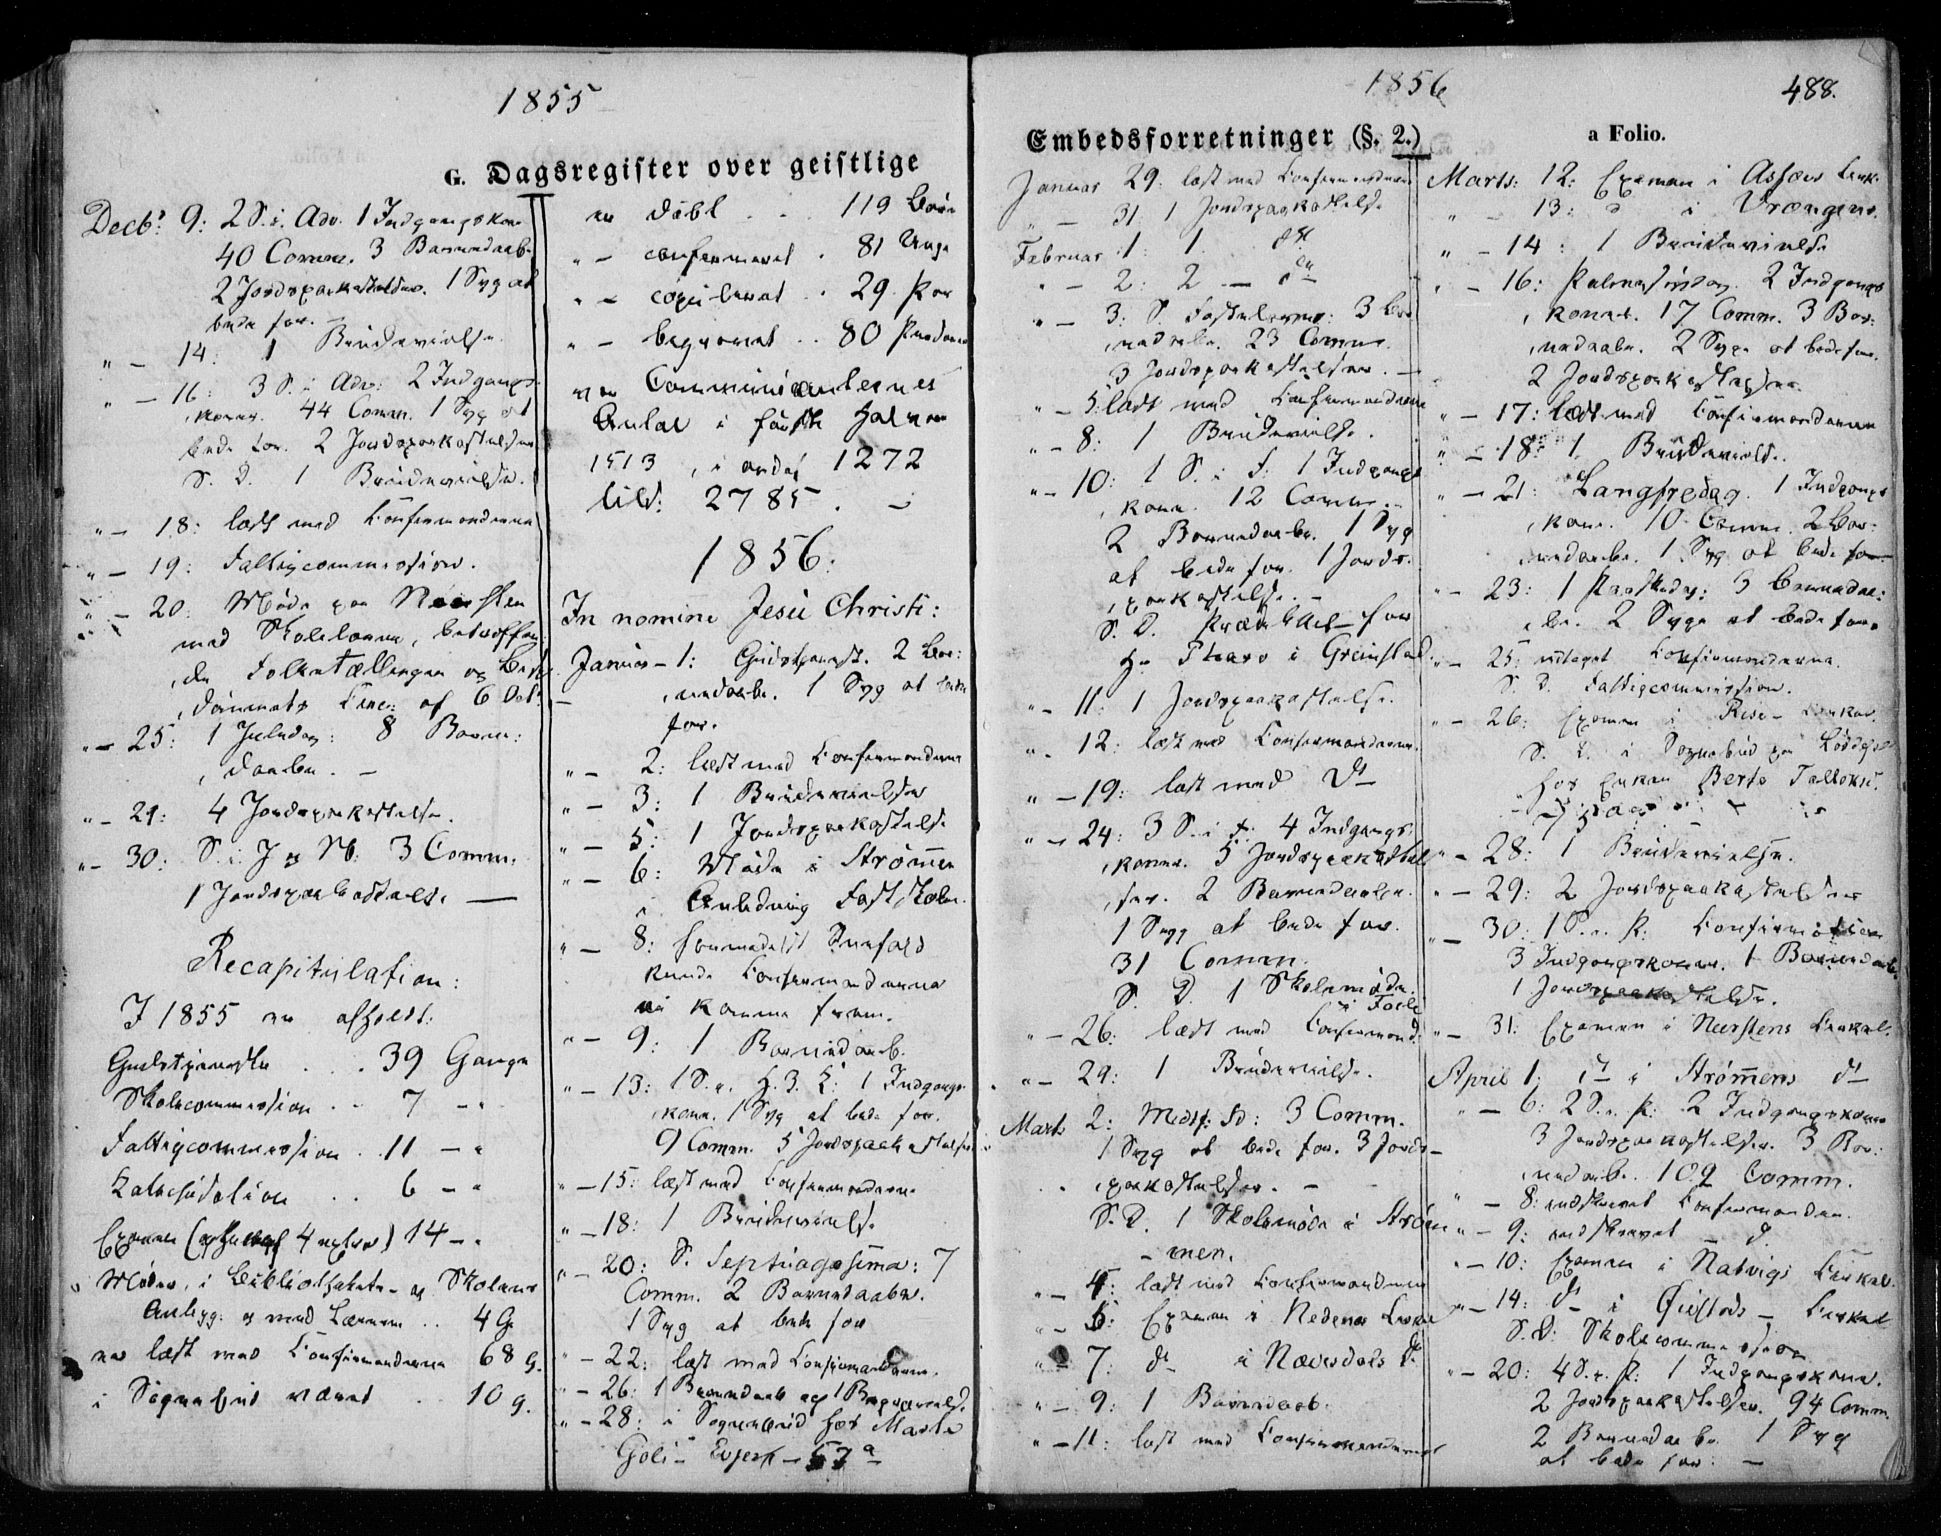 1855
G. Dagsregister over geistlige
Decbr 9: 2 S. i. Adv. 1 Indgangskone
40 Comm. 3 Barnedaab.
2 Jordspaakastelser. 1 Syg at
bede for. –
" – 14: 1 Brudevielse.
" – 16: 3 S. i Adv: 2 Indgangs-
koner. 44 Comm. 1 Syg at
bede for. 2 Jordspaakastelser
S. D. 1 Brudevielse.
" – 18: læst med Confirmanderne
" – 19: Fattigcommission.
" – 20: Møde paa
med Skolelærerne, betreffen-
de Folketællingen og
Circ: af 6 Oct:
" – 25: 1 Juledag: 8 Barne-
daabe. –
" – 29: 4 Jordspaakastelse.
" – 30: S. i. J og N: 3 Comm.
1 Jordspaakastelse. —
Recapitulation:
I 1855 er afholdt:
Gudstjeneste . . . 39 Gange
Skolecommission . . 7 – "
Fattigcommission . . 11 – "
Katechisation . . 6 – "
Examen ( 4 ) 14 – "
" Møder, i Bibliothekets- og Skolens
Anligg: og med Lærerne . . 4 G
er læst med Confirmanderne 68 g.
i Sognebud været . . 10 g.
er døbt . . . 119 Børn
" – confirmeret . 81 Unge
" – copuleret . . 29 Par
" – begravet . . 80 Personer
var Communicanternes
Antal i første Halvaar
1513, i andet 1272
tils: 2785. –
1856:
In nomine Jesu Christi:
Januar – 1: Gudstjenest. 2 Bar-
nedaabe. 1 Syg at bede
for.
" – 2: læst med Confirmanderne
" – 3: 1 Brudevielse
" – 5: 1 Jordspaakastelse
" – 6: Møde i Strømmen
i Anledning Fast Skole.
" – 8: formedelst Sneefald
kunde Confirmanderne
ei komme frem.
" – 9: 1 Barnedaab.
" – 13: 1 S. e. H. 3 K: 1 Indgangs-
kone. 1 Syg at bede for.
9 Comm. 5 Jordspaakastelser
" – 15: læst med Confirmanderne
" – 18: 1 Brudevielse
" – 20: S. Septuagesima: 7
Comm. 2 Barnedaabe.
1 Syg at bede for
" – 22: læst med Confirmanderne.
" – 26: 1 Barnedaab og 1 Begravelse
" – 28: i Sognebud hos Marte
Goli- Evjert – 57 a –
1856
488.
Embedsforretninger (§. 2.)
a Folio.
Januar 29: læst med Confirmanderne
" – 31 1 Jordspaakastelse
Februar 1: 1 dt
" – 2: 2 – do
" – 3: S. Fastelavns: 3 Bar-
nedaabe. 23 Comm.
3 Jordspaakastelser. —
" – 5: læst med Confirmanderne
" – 8: 1 Brudevielse.
" – 10: 1 S. i F. 1 Indgangs-
kone. 12 Comm.
2 Barnedaabe. 1 Syg
at bede for. 1 Jords-
paakastelse. –
S. D. for
Hr i Grimstad.
" – 11: 1 Jordspaakastelse.
" – 12: læst med Confirmanderne.
" – 19: læst med Dt
" – 24: 3 S. i F. 4 Indgangs-
koner. 5 Jordspaakastel-
ser. 2 Barnedaabe.
1 Syg at bede for.
31 Comm.
S. D. 1 Skolemøde.
" – 26: læst med Confirmand:
" – 29: 1 Brudevielse.
Marts 2: Midf: Sd: 3 Comm.
1 Syg at bede for. 3 Jords-
paakastelser. –
S. D. 1 Skolemøde i Strøm-
men.
" – 4: læst med Confirmanderne
" – 5: Examen i Nedenes Circul
" – 7: dt i Nævesdals d.
" – 9: 1 Barnedaab.
" – 11: læst med Confirmanderne
Marts: 12: Examen i Assævs Circ.
" – 13: d i Vrængens.
" – 14: 1 Brudevielse
" – 16: Palmesøndag. 2 Indgangs-
koner. 17 Comm. 3 Bar-
nedaabe. 2 Syge at bede for.
2 Jordspaakastelser.
" – 17: læst med Confirmanderne
" – 18: 1 Brudevielse.
" – 21: Langfredag. 1 Indgangs-
kone. 10 Comm. 2 Bar-
nedaabe. 1 Syg at bede for
" – 23: 1 Paaskedag: 3 Barnedaa-
be. 2 Syge at bede for.
" – 25: Confirmanderne.
S. D. Fattigcommission.
" – 26: Examen i Circul.
S. D. i Sognebud paa
hos Enken Berte
" – 28: 1 Brudevielse.
" – 29: 2 Jordspaakastelser
" – 30: 1 S. e. P. Confirmation
3 Indgangskoner. 1 Barnedaab.
1 Jordspaakastelse.
" – 31: Examen i Neerstens Circul.
April 1: dt i Strømmens dt
" – 6: 2 S. e. P. 2 Indgangskoner
3 Jordspaakastelser. 3 Bar-
nedaabe. 109 Comm.
" – 8: indskrevet Confirmander.
" – 9: indskrevet – d.
" – 10: Examen i Natvigs Circul.
" – 14: dt i Øiestads – Circul
S. D. Skolecommission
" – 20: 4 S. e. P: 1 Indgangskone.
2 Jordspaakastelser. 94 Comm.
2 Barnedaabe. 1 Syg
at bede for: –